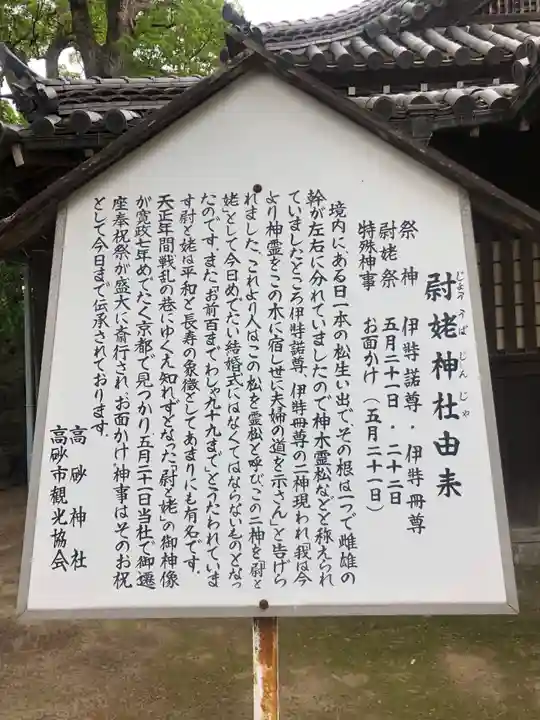 尉姥神社由来
じょう うば じん じゃ
祭神 伊弉諾尊・伊弉冊尊
尉姥祭 五月二十一日・二十二日
特殊神事 お面かけ(五月二十一日)
境内に、ある日一本の松生い出で、その根は一つで雌雄の
幹が左右に分れていましたので神木霊松などと称えられ
ていましたところ伊弉諾尊、伊弉冊尊の二神現われ、我は今
より神霊をこの木に宿し世に夫婦の道を示さん」と告げら
れました、これより人はこの松を霊松と呼びこの二神を「尉と
姥」として今日めでたい結婚式にはなくてはならないものとなっ
たのです、また「お前百までわしゃ九十九まで」とうたわれていま
す尉と姥は平和と長寿の象徴としてあまりにも有名です。
天正年間戦乱の巷にゆくえ知れずとなった「尉と姥」の御神像
が寛政七年めでたく京都で見つかり五月二十一日当社で御遷
座奉祝祭が盛大に斎行され、お面かけ神事はそのお祝
として今日まで伝承されております。
高砂神社
高砂市観光協会